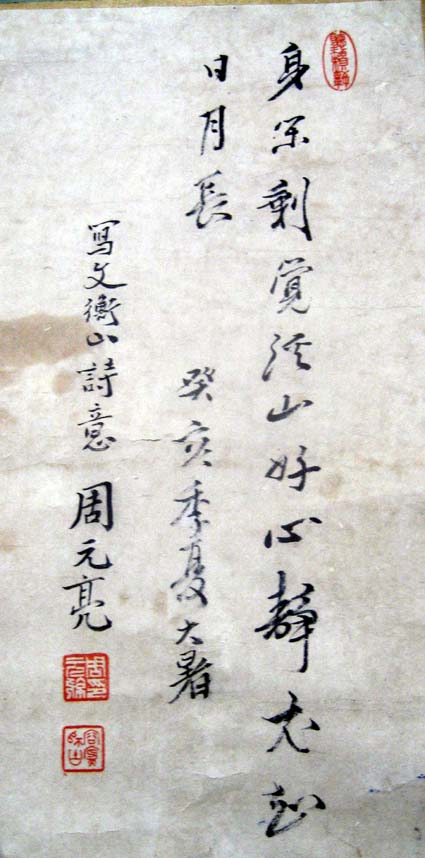 身閒剩覺溪山好心靜尤知
日月長
癸亥季夏大暑
寫文衡山詩意 周元亮